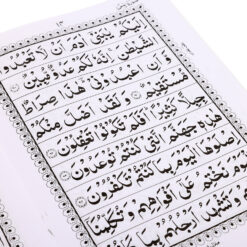 ١٣
اِلَيْكُمْ يٰبَنِيْٓ اٰدَمَ اَنْ لَّا تَعْبُدُوا
الشَّيْطٰنَ اِنَّهٗ لَكُمْ عَدُوٌّ مُّبِيْنٌ
اَنِ اعْبُدُوْنِيْ هٰذَا صِرَاطٌ
مُّسْتَقِيْمٌ وَلَقَدْ اَضَلَّ مِنْكُمْ
جِبِلًّا كَثِيْرًا اَفَلَمْ تَكُوْنُوْا تَعْقِلُوْنَ
هٰذِهٖ جَهَنَّمُ الَّتِيْ كُنْتُمْ تُوْعَدُوْنَ
صْلَوْهَا الْيَوْمَ بِمَا كُنْتُمْ تَكْفُرُوْنَ
نَخْتِمُ عَلٰٓى اَفْوَاهِهِمْ وَتُكَلِّمُنَآ
وَتَشْهَدُ اَرْجُلُهُمْ بِمَا